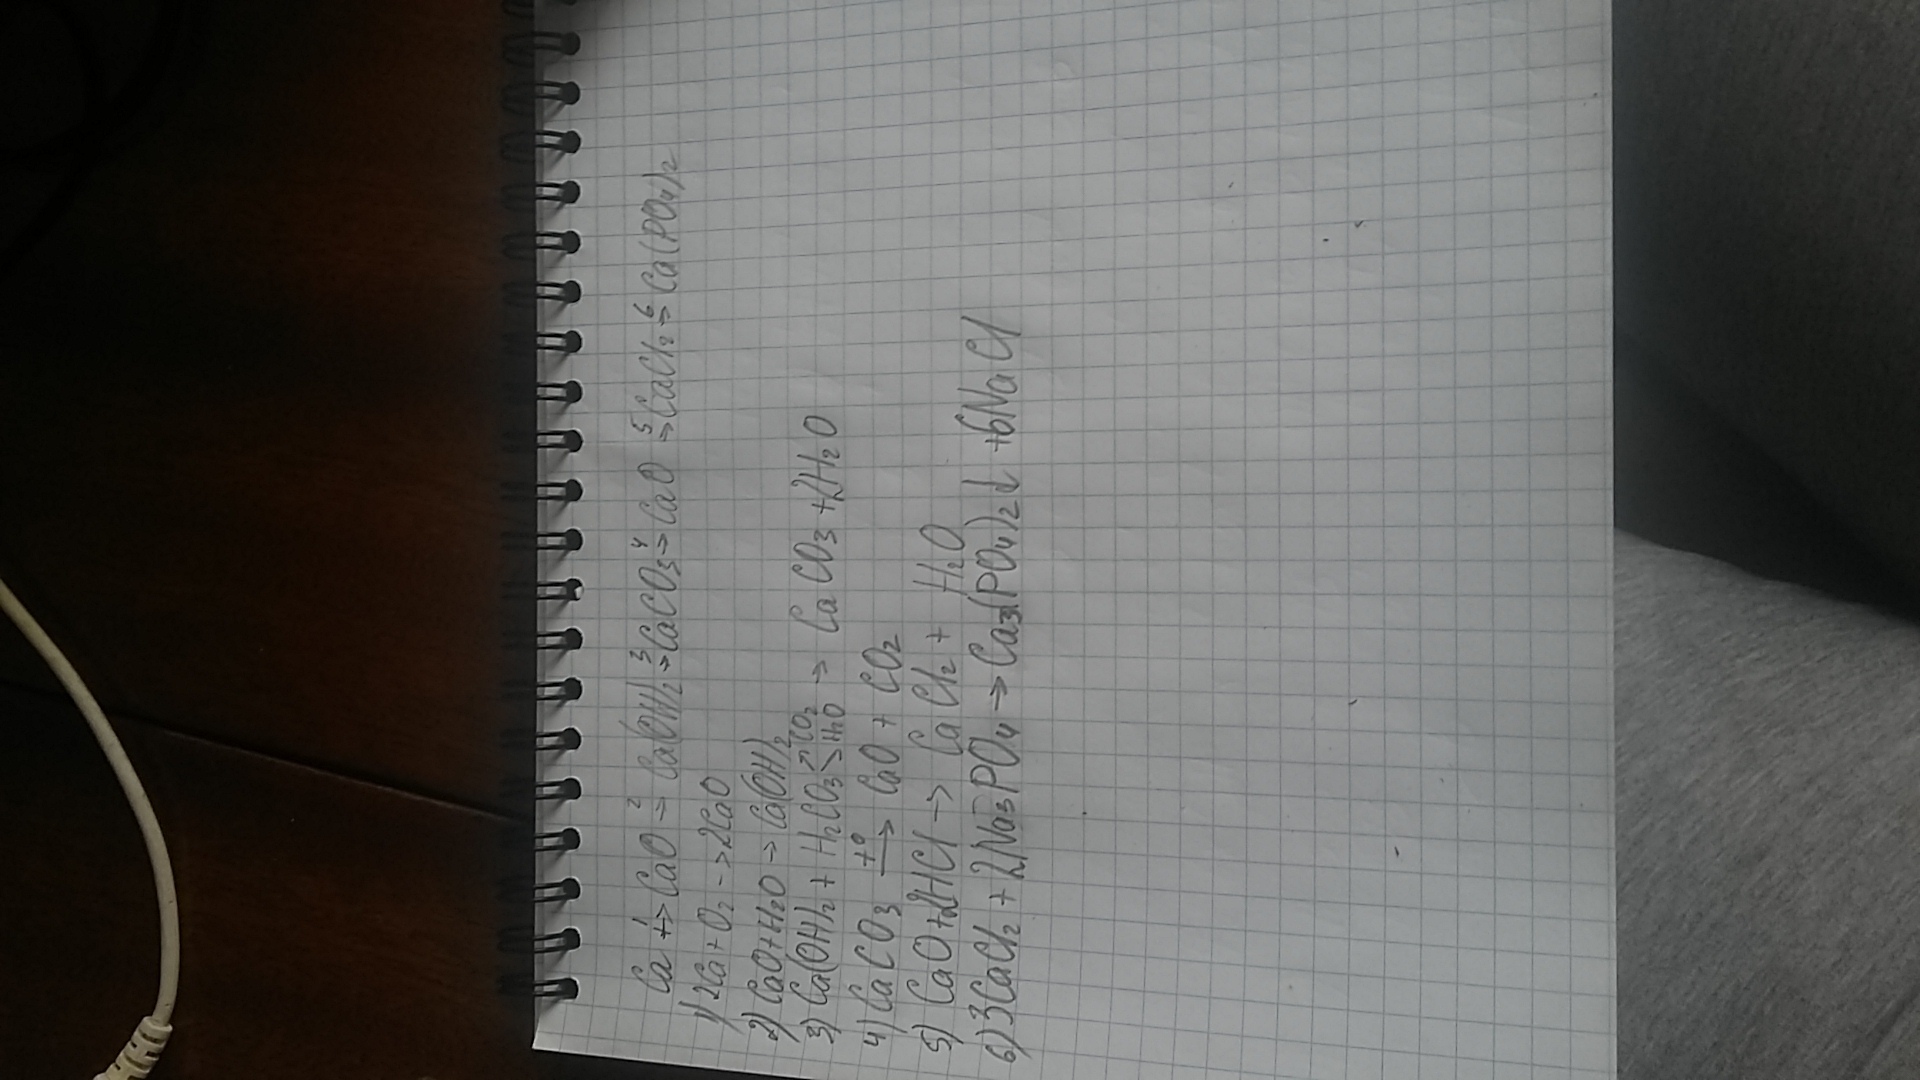 Ca →¹ CaO →² Ca(OH)₂ →³ CaCO₃ →⁴ CaO →⁵ CaCl₂ →⁶ Ca(PO₄)₂
1) 2Ca + O₂ → 2CaO
2) CaO + H₂O → Ca(OH)₂
3) Ca(OH)₂ + H₂CO₃ ↗CO₂ ↘H₂O → CaCO₃ + 2H₂O
4) CaCO₃ →t° CaO + CO₂
5) CaO + 2HCl → CaCl₂ + H₂O
6) 3CaCl₂ + 2Na₃PO₄ → Ca₃(PO₄)₂↓ + 6NaCl